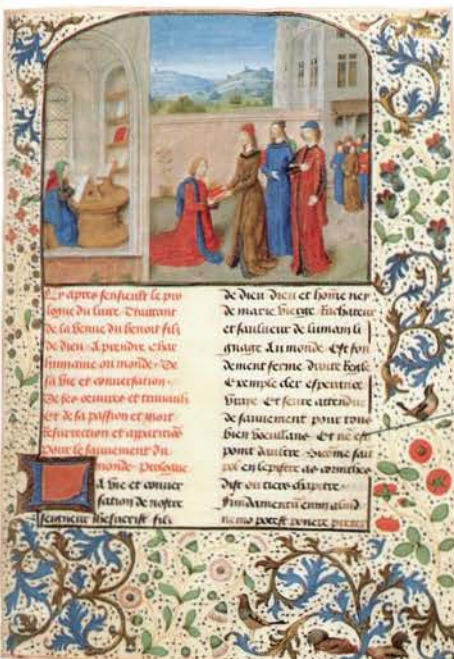 Cy apres sensieult le pro
logue du livre Traittant
de la venue du benoit filz
de dieu A prendre char
humaine ou monde De
sa vie et conversation
De ses oeuvres et travaulx
Et de sa passion et mort
Resurrection et apparitions
pour le sauvement du
monde prologue
La vie et conver
sation de nostre
seigneur ihesucrist filz
de dieu dieu et home ney
de marie vierge Rachateur
et saulveur de lumain li
gnage Au monde Est fon
dement ferme droitte
Exemple cler esperance
vraye Et seure attendue
de sauvement pour tous
bien voeullans Et ne est
point daultre Sicomme saint
pol en lepistre as corinthes
dist ou tiers chapitre
Fundamentum enim aliud
nemo potest ponere preter